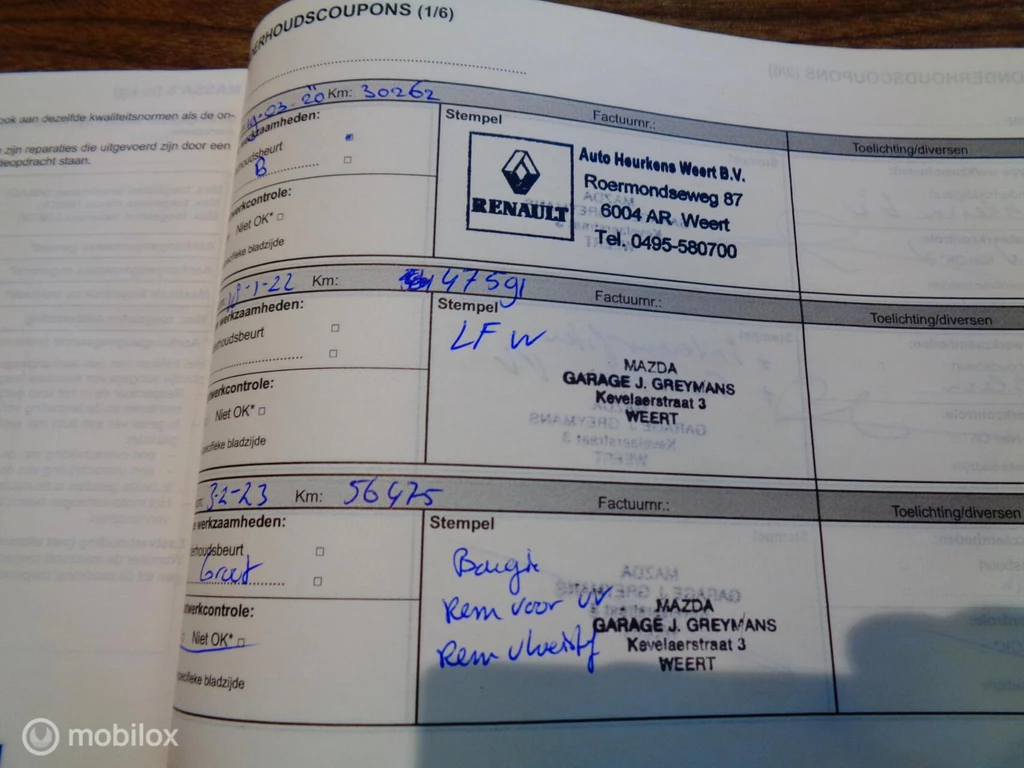 ERHOUDSCOUPONS (1/6)
ook aan dezelfde kwaliteitsnormen als de on-
zijn reparaties die uitgevoerd zijn door een
eopdracht staan.
-03-20 Km: 30262 Factuurnr.:
kzaamheden:
houdsbeurt
B
erkcontrole:
Niet OK*
efieke bladzijde
Stempel
RENAULT
Auto Heurkens Weert B.V.
Roermondseweg 87
6004 AR Weert
Tel. 0495-580700
Toelichting/diversen
-1-22 Km: 47591 Factuurnr.:
werkzaamheden:
houdsbeurt
twerkcontrole:
Niet OK*
ecifieke bladzijde
Stempel
LFW
MAZDA
GARAGE J. GREYMANS
Kevelaerstraat 3
WEERT
Toelichting/diversen
3-2-23 Km: 56475 Factuurnr.:
werkzaamheden:
erhoudsbeurt
Groot
twerkcontrole:
Niet OK*
pecifieke bladzijde
Stempel
Bougie
Rem voor VV
Rem vloeistof
MAZDA
GARAGE J. GREYMANS
Kevelaerstraat 3
WEERT
Toelichting/diversen
mobilox